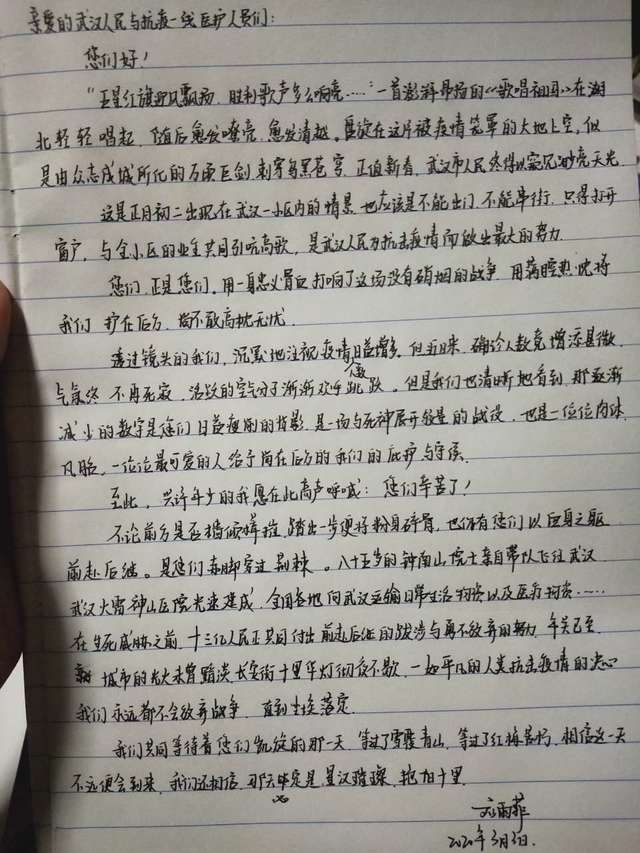 亲爱的武汉人民与抗疫一线医护人员们:
您们好!
"五星红旗迎风飘扬,胜利歌声多么响亮……"一首澎湃昂扬的《歌唱祖国》在湖
北轻轻唱起,随后愈发嘹亮,愈发清越。盘旋在这片被疫情笼罩的大地上空,似
是由众志成城所化的万顷巨剑,刺穿乌黑苍穹,正值新春,武汉市人民终得以窥见明亮天光
这是正月初二出现在武汉一小区内的情景,也应该是不能出门,不能串街,只得打开
窗户,与全小区的业主共同引吭高歌,是武汉人民为抗击疫情而做出最大的努力.
您们,正是您们,用一身忠义骨血打响了这场没有硝烟的战争,用满腔热忱将
我们护在后方,尚不敢高枕无忧.
透过镜头的我们,沉默地注视疫情人数日益增多,但近日来,确诊人数竟增添甚微,
气氛终不再死寂,活跃的空气分子渐渐欢乐跳跃。但是我们也清晰地看到,那逐渐
减少的数字是您们日益瘦削的背影,是一场与死神展开较量的战役,也是一位位肉体
凡胎,一位位最可爱的人给予尚在后方的我们的庇护与守候.
至此,兴许年少的我愿在此高声呼喊:您们辛苦了!
不论前方是否踏出一步便将粉身碎骨,也仍有您们以血身之躯
前赴后继。是您们赤脚穿过荆棘。八十五岁的钟南山院士亲自带队飞往武汉,
武汉火雷神山医院光速建成,全国各地向武汉运输日常生活物资以及医疗物资……
在生死威胁之前,十三亿人民正共同付出前赴后继的跋涉与再不放弃的努力,年关已至,
城市的光火未曾黯淡,长安街十里华灯彻夜不歇,一如平凡的人类抗击疫情的决心
我们永远都不会放弃战争,直到尘埃落定.
我们共同等待着您们凯旋的那一天,等过了雪覆青山,等过了红梅,相信这一天
不远便会到来,我们还相信,那天定是星汉璀璨,艳阳十里.
刘雨菲
2020年3月3日.